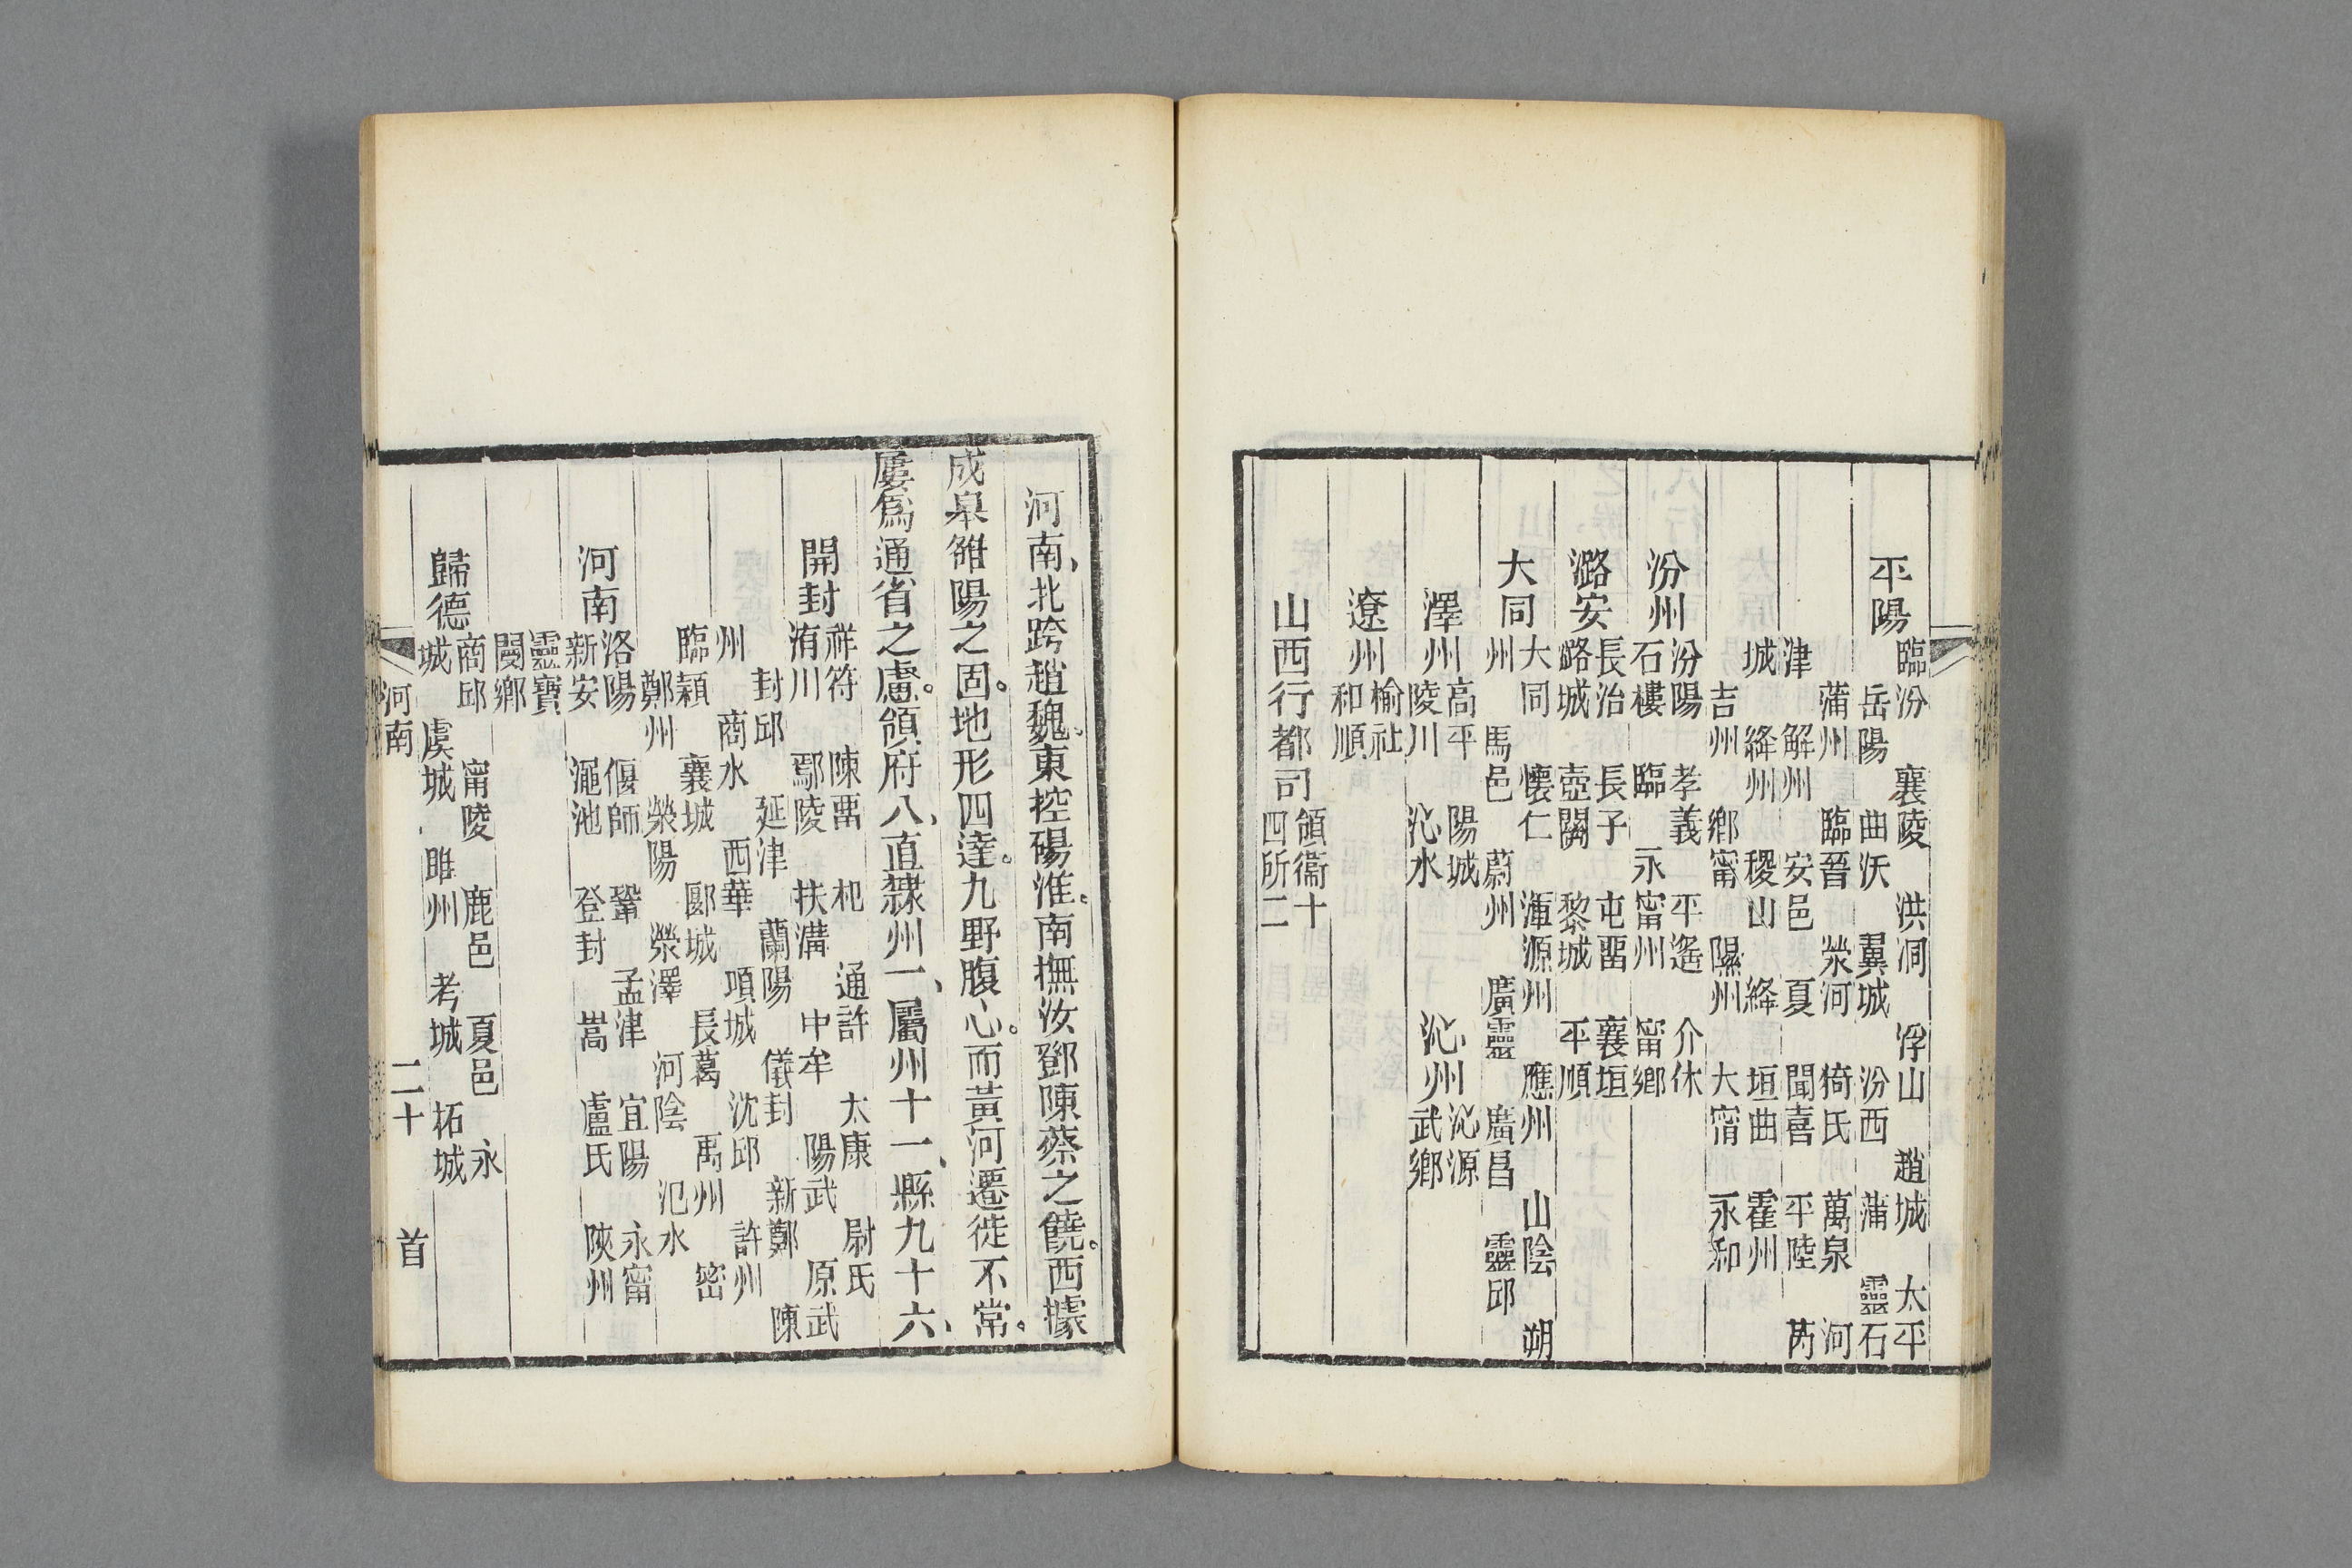 平陽
臨汾 襄陵 洪洞 浮山 趙城 太平
岳陽 曲沃 翼城 汾西 蒲 靈石
蒲州 臨晉 滎河 猗氏 萬泉 河
津 解州 安邑 夏 聞喜 平陸 芮
城 絳州 稷山 絳 垣曲 霍州
吉州 鄉甯 隰州 大甯 永和
汾州
汾陽 孝義 平遙 介休
石樓 臨 永甯州 甯鄉
潞安
長治 長子 屯畱 襄垣
潞城 壺關 黎城 平順
大同
大同 懷仁 渾源州 應州 山陰 朔
州 馬邑 蔚州 廣靈 廣昌 靈邱
澤州
高平 陽城
陵川 沁水
沁州
沁源
武鄉
遼州
榆社
和順
山西行都司
領衞十
四所二
河南、北跨趙魏。東控碭淮。南撫汝鄧陳蔡之饒。西據
成皋雒陽之固。地形四達。九野腹心。而黃河遷徙不常。
屢爲通省之慮。領府八、直隸州一、屬州十一、縣九十六、
開封
祥符 陳畱 杞 通許 太康 尉氏
洧川 鄢陵 扶溝 中牟 陽武 原武
封邱 延津 蘭陽 儀封 新鄭 陳
州 商水 西華 項城 沈邱 許州
臨潁 襄城 郾城 長葛 禹州 密
鄭州 滎陽 滎澤 河陰 汜水
河南
洛陽 偃師 鞏 孟津 宜陽 永甯
新安 澠池 登封 嵩 盧氏 陝州
靈寶
閿鄉
歸德
商邱 甯陵 鹿邑 夏邑 永
城 虞城 睢州 考城 柘城
河南 二十 首